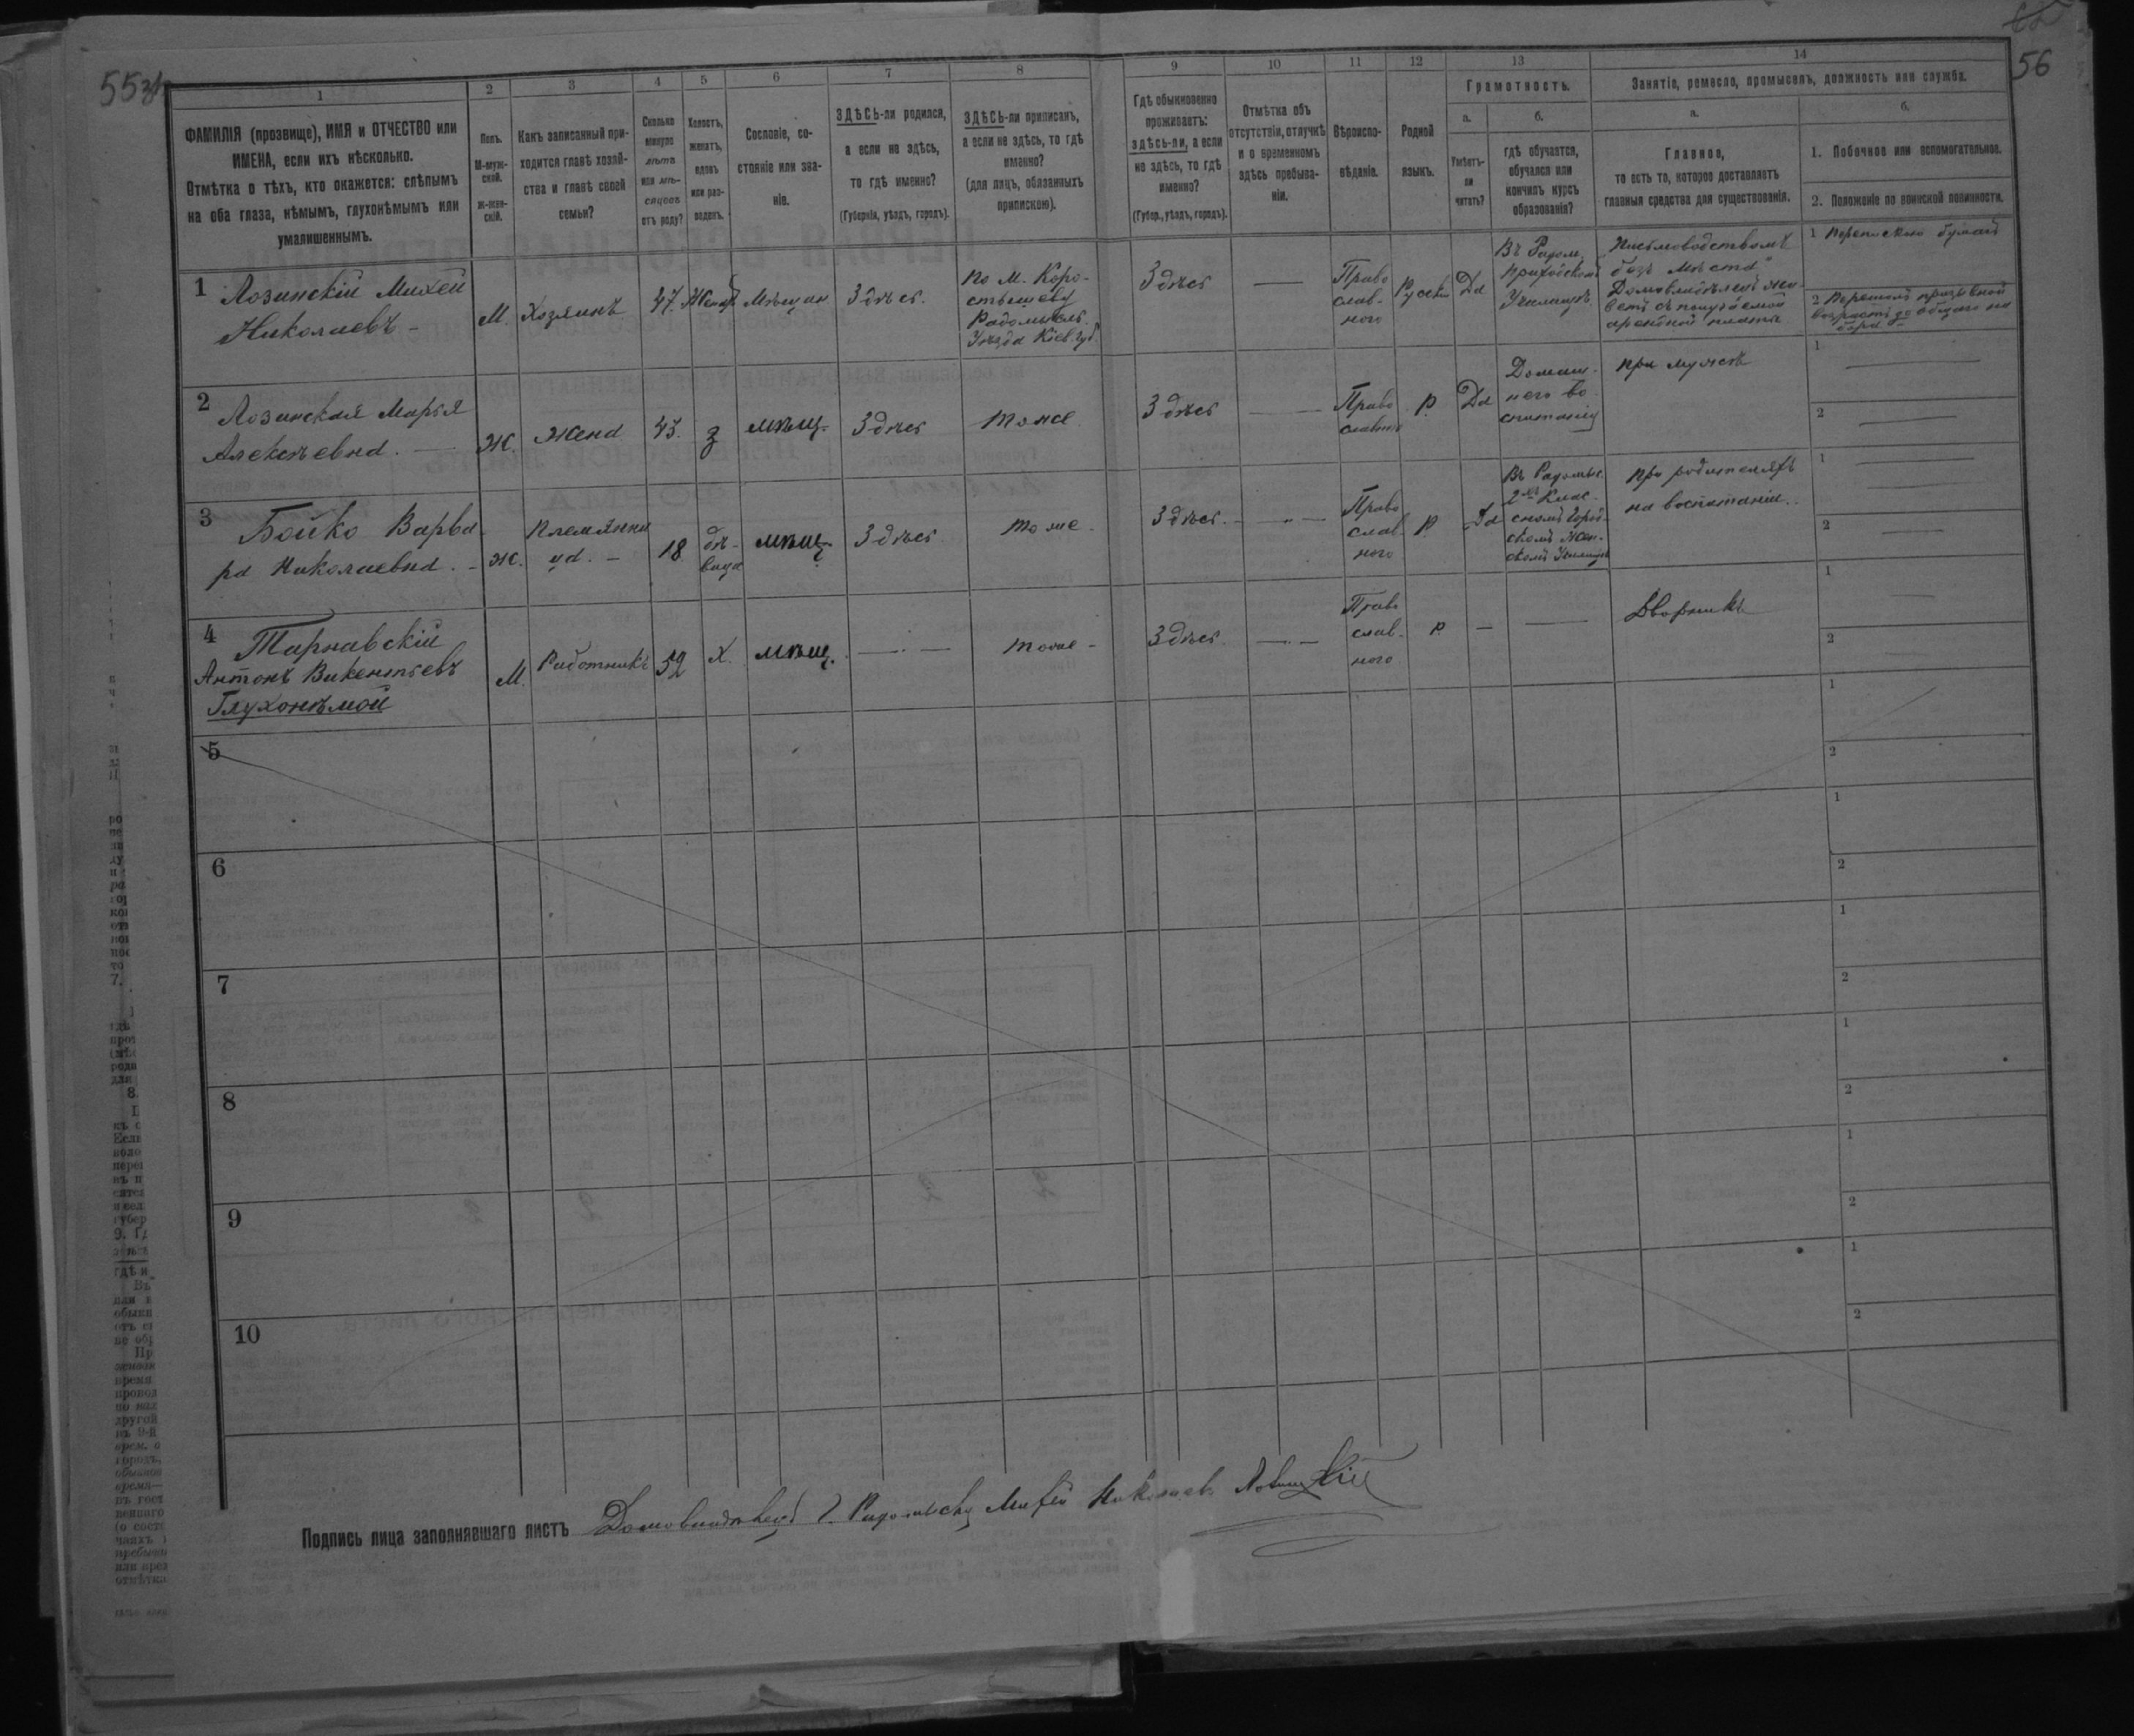 55зв
56
1
2
3
4
5
6
7
8
9
10
11
12
13
14
ФАМИЛІЯ (прозвище), ИМЯ и ОТЧЕСТВО или
ИМЕНА, если ихъ нѣсколько.
Отмѣтка о тѣхъ, кто окажется: слѣпымъ
на оба глаза, нѣмымъ, глухонѣмымъ или
умалишеннымъ.
Полъ.
М-муж-
ской.
Ж-жен-
скій.
Какъ записанный при-
ходится главѣ хозяй-
ства и главѣ своей
семьи?
Сколько
минуло
лѣтъ
или мѣ-
сяцевъ
отъ роду?
Холостъ,
женатъ,
вдовъ
или раз-
веденъ.
Сословіе, со-
стояніе или зва-
ніе.
ЗДѢСЬ-ли родился,
а если не здѣсь,
то гдѣ именно?
(Губернія, уѣздъ, городъ).
ЗДѢСЬ-ли приписанъ,
а если не здѣсь, то гдѣ
именно?
(для лицъ, обязанныхъ
припискою).
Гдѣ обыкновенно
проживаетъ:
здѣсь-ли, а если
не здѣсь, то гдѣ
именно?
(Губер., уѣздъ, городъ).
Отмѣтка объ
отсутствіи, отлучкѣ
и о временномъ
здѣсь пребыва-
ніи.
Вѣроиспо-
вѣданіе.
Родной
языкъ.
Грамотность.
а.
Умѣетъ-
ли
читать?
б.
гдѣ обучается,
обучался или
кончилъ курсъ
образованія?
Занятіе, ремесло, промыселъ, должность или служба.
а.
Главное,
то есть то, которое доставляетъ
главныя средства для существованія.
б.
1. Побочное или вспомогательное.
2. Положеніе по воинской повинности.
1 Лозинскій Михей
Николаевъ -
М.
Хозяинъ
47.
Женатъ
Мѣщан
Здѣсь.
по М. Коро-
стышеву
Радомысль.
Уѣзда Кіев. губ.
Здѣсь
—
Право
слав-
ного
Русскій
Да
Въ Радом.
приходскомъ
Училищѣ.
Письмоводствомъ
безъ мѣста
Домовладѣлецъ жи-
ветъ съ получаемой
арендной платы
1 Перепискою бумагъ
2
2 Лозинская Марья
Алексѣевна. —
Ж.
Жена
43.
З
мѣщ.
Здѣсь
тоже
Здѣсь
— —
Право
славного
Р.
Да
Домаш-
него во-
спитанія
при мужѣ
1 —
2 —
3 Бойко Варва-
ра Николаевна. -
Ж.
Племянни
ца. -
18
дѣ-
вица
мѣщ.
Здѣсь
тоже -
Здѣсь. -
—
Право
слав-
ного
Р.
Да
Въ Радомыс.
2хъ Клас-
сномъ Город-
скомъ Жен-
скомъ Училищѣ
при родителяхъ
на воспитаніи.
1 —
2 —
4 Тарнавскій
Антонъ Викентьевъ
Глухонѣмой
М.
Работникъ
52
Х.
мѣщ.
— —
тоже -
Здѣсь.
— —
Право
слав-
ного
Р.
—
—
Дворникъ
1 —
2 —
5
1
2
6
1
2
7
1
2
8
1
2
9
1
2
10
1
2
Подпись лица заполнявшаго листъ Домовладѣлецъ г. Радомысля Михей Николаевъ Лозинскій